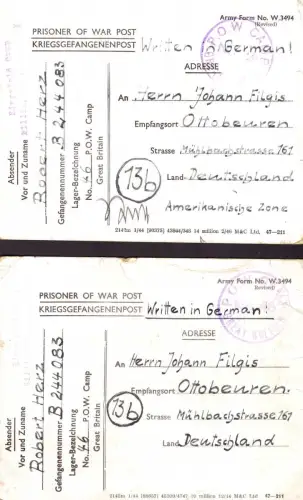 Army Form No. W.3494
(Revised)
PRISONER OF WAR POST
KRIEGSGEFANGENENPOST
Written in German!
ADRESSE
An Herrn Johann Filgis
Empfangsort Ottobeuren
Strasse Mühlbachstrasse 161
Land Deutschland
Amerikanische Zone
13b
Absender
Vor und Zuname
Robert Herz
Gefangenennummer B 244 083
Lager-Bezeichnung
No. 46 P.O.W. Camp
Great Britain
M&C Ltd. 47—211
Army Form No. W.3494
(Revised)
PRISONER OF WAR POST
KRIEGSGEFANGENENPOST
Written in German!
ADRESSE
An Herrn Johann Filgis
Empfangsort Ottobeuren.
Strasse Mühlbachstrasse 161
Land Deutschland
13b
Absender
Vor und Zuname
Robert Herz
Gefangenennummer B 244 083
Lager-Bezeichnung
No. 46 P.O.W. Camp
Great Britain
M&C Ltd. 47—211